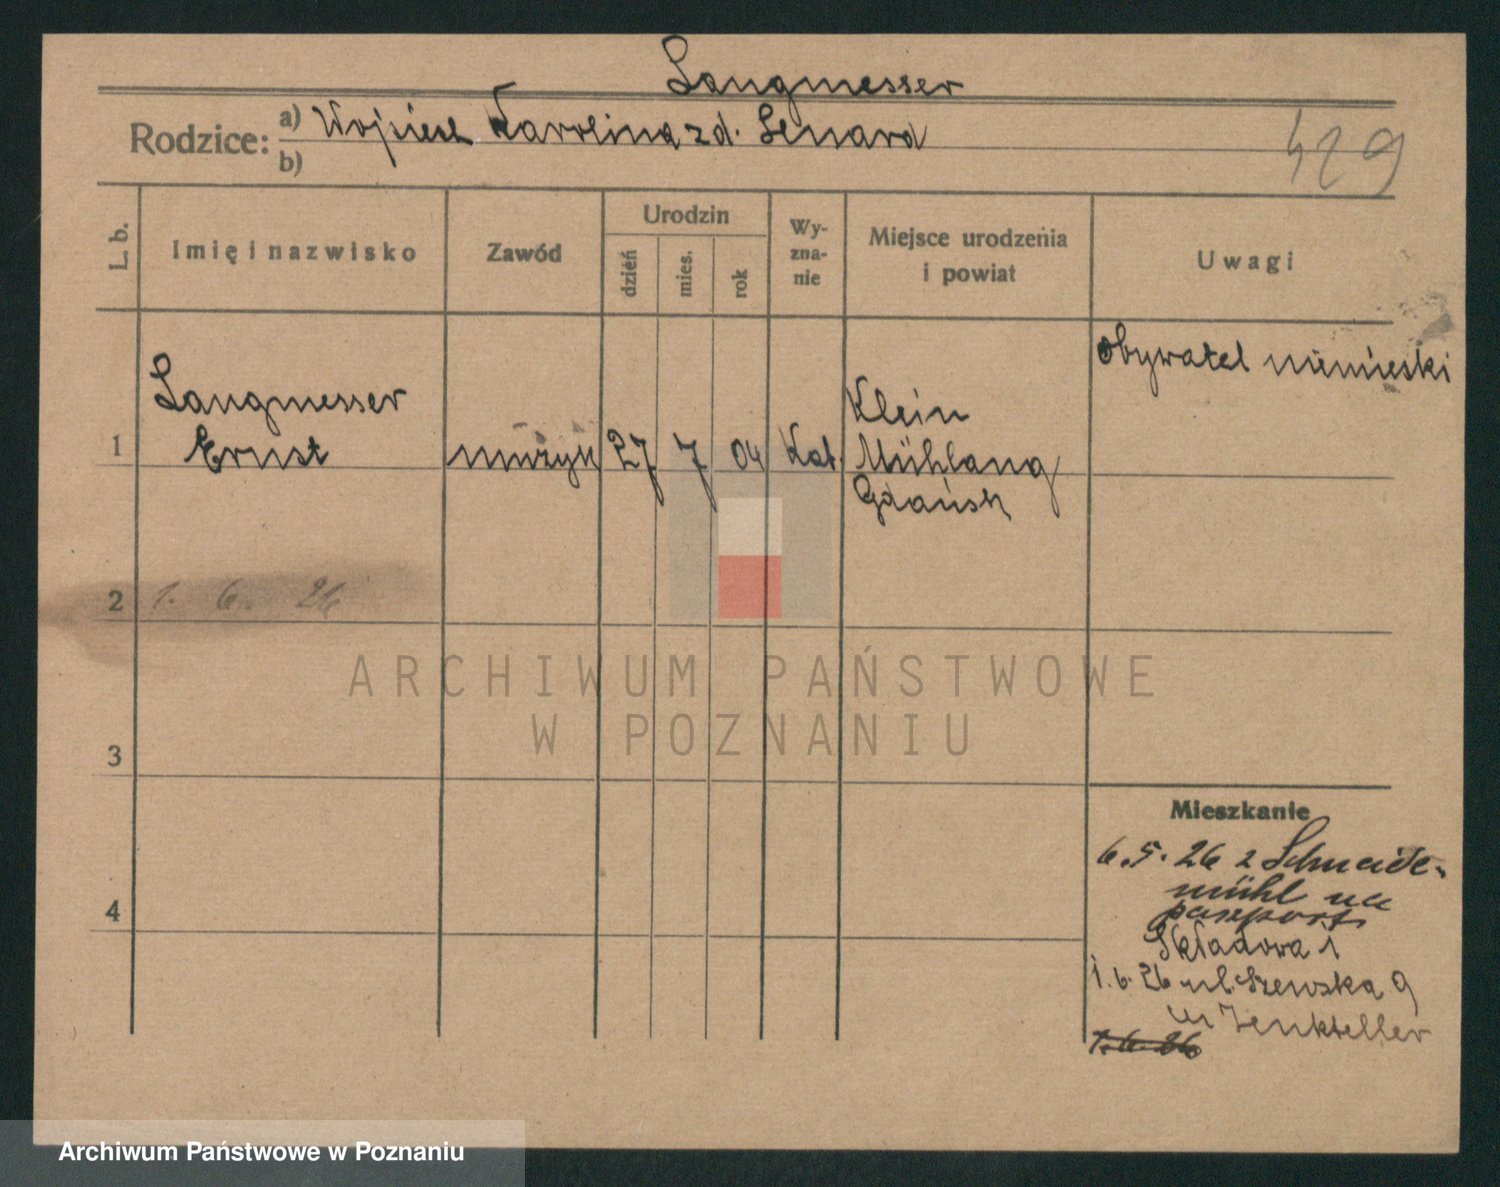 Langmesser
Rodzice: a) Wojciech Karolina zd. Lenard
b)
429
L. b. Imię i nazwisko Zawód Urodzin dzień mies. rok Wy-zna-nie Miejsce urodzenia i powiat Uwagi
obywatel niemiecki
Langmesser Klein
1 Ernst muzyk 27 7 04 Kat. Mühlang
Gdańsk
2 1. 6. 26
ARCHIWUM PAŃSTWOWE
W POZNANIU
3
Mieszkanie
6.5.26 z Schneide-
4 mühl na
paszport
Składowa 1
1.6.26 ul. Szewska 9
1.6.26
Archiwum Państwowe w Poznaniu